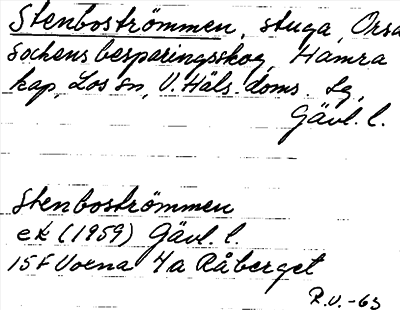 Stenboströmmen, stuga, Orsa
Sockens besparingsskog, Hamra
kap, Los sn, V. Häls. doms. lg,
Gävl. l.
Stenboströmmen
ek (1959) Gävl. l.
15 F Voxna 4a Råberget
R.V. -63